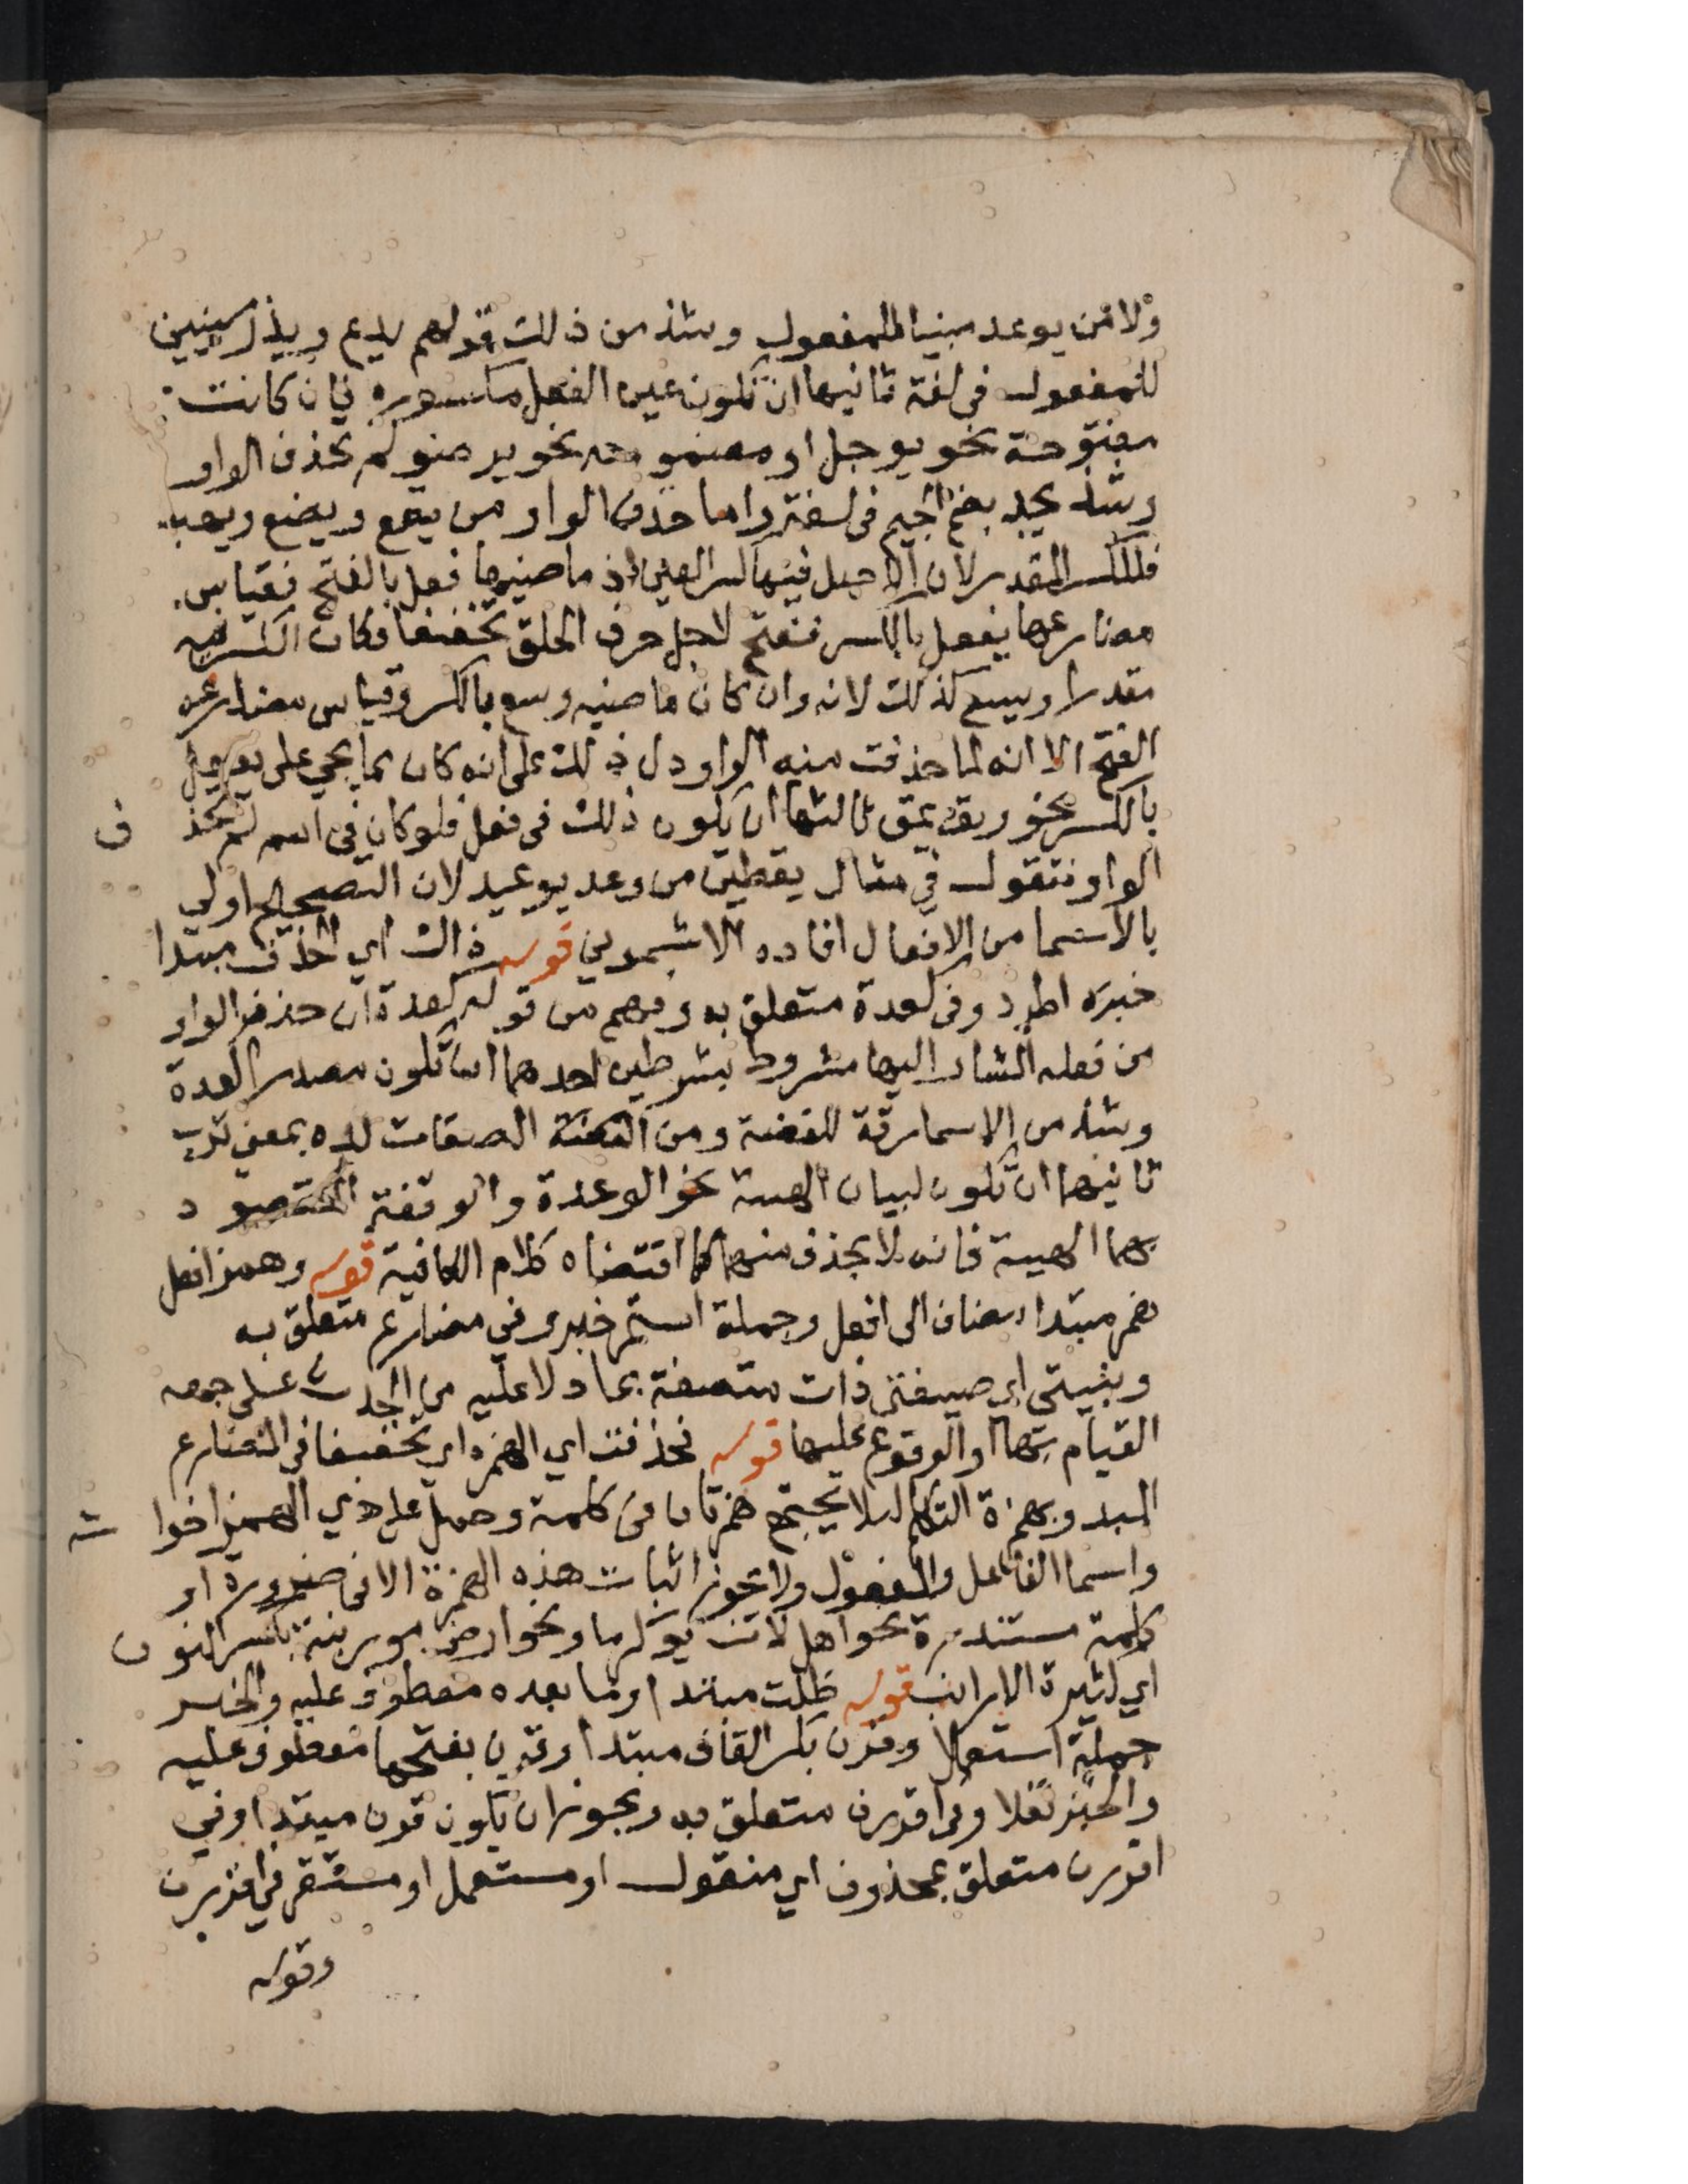 ولا من يوعد مبنيا للمفعول وشذ من ذلك قولهم يدع ويذر مبنيين
للمفعول في لغة ثانيها ان تكون عين الفعل مكسورة فان كانت
مفتوحة نحو يوجل او مضمومه نحو يوضو لم تحذف الواو
وشذ يجد بضم الجيم في لغة واما حذف الواو من يقع ويضع ويهب
فللكسر المقدر لان الاصل فيها كسر العين اذ ماضيها فعل بالفتح فقياس
مضارعها يفعل بالكسر ففتح لاجل حرف الحلق تخفيفا فكان الكسر فيه
مقدرا ويسع كذلك لانه وان كان ماضيه وسع بالكسر وقياس مضارعه
الفتح الا انه لما حذفت منه الواو دل ذلك على انه كان مما يجي على يفعل
بالكسر نحو ومق يمق ثالثها ان يكون ذلك في فعل فلو كان في اسم لم تحذف
الواو فتقول في مثال يقطين من وعد يوعيد لان التصحيح اولى
بالاسما من الافعال افاده الاشموني قوله ذاك اي الحذف مبتدا
خبره اطرد وفي كعدة متعلق به وفهم من قوله كعدة ان حذف الواو
من فعله المشار اليها مشروط بشرطين احدهما ان تكون مصدر العدة
وشذ من الاسما رقة للفضة ومن الصفات لده بمعنى ترب
ثانيهما ان تكون لبيان الهيئة نحو الوعدة والوقفة المقصود
بهما الهيئة فانه لا يحذف منهما كما اقتضاه كلام الكافية قوله وهمز افعل
همز مبتدا مضاف الى افعل وجملة استمر خبره وفي مضارع متعلق به
وبنيتي اي صيغتي ذات متصفة بما دلا عليه من الحدث على جهة
القيام بها او الوقوع عليها قوله فحذفت اي الهمزه اي تخفيفا في المضارع
المبدو بهمزة التكلم ليلا تجتمع همزتان في كلمة وحمل على ذي الهمز اخواته
واسما الفاعل والمفعول ولا تجوز اثبات هذه الهمزة الا في ضرورة او
كلمة مستندرة نحو اهل لان يؤكرما ونحو ارض مورنبة بكسر النون
اي كثيرة الارانب قوله ظلت مبتدا وما بعده معطوف عليه والخبر
جملة استعملا وقرن بكسر القاف مبتدا وقرن بفتحها معطوف عليه
والخبر نقلا وفي اقررن متعلق به ويجوز ان يكون قرن مبتدا وفي
اقررن متعلق بمحذوف اي منقول او مستعمل او مستقر في اقررن
وقوله